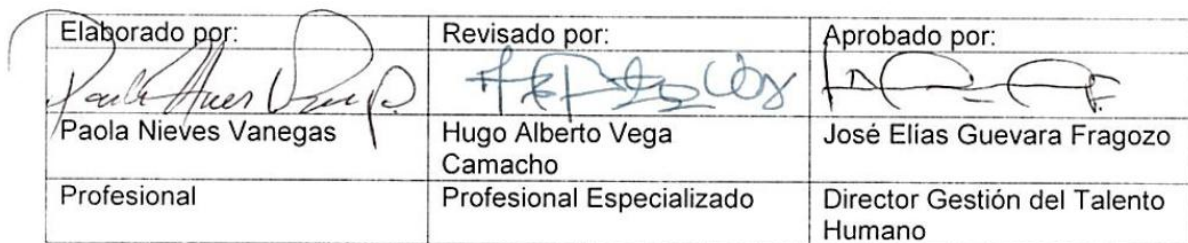 Elaborado por:
Revisado por:
Aprobado por:
Paola Nieves Vanegas
Hugo Alberto Vega
Camacho
José Elías Guevara Fragozo
Profesional
Profesional Especializado
Director Gestión del Talento
Humano